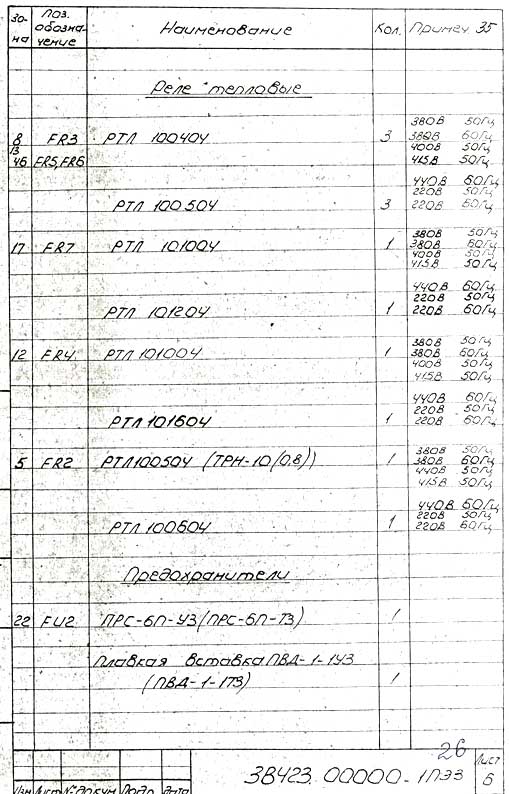 Зо- Поз.
на обозна- Наименование Кол. Примеч. 35
чение
Реле тепловые
380В 50Гц
8 FR3 РТЛ 100404 3 380В 60Гц
13 400В 50Гц
46 FR5, FR6 415В 50Гц
440В 60Гц
220В 50Гц
РТЛ 100504 3 220В 60Гц
380В 50Гц
17 FR7 РТЛ 101004 1 380В 60Гц
400В 50Гц
415В 50Гц
440В 60Гц
220В 50Гц
РТЛ 101204 1 220В 60Гц
380В 50Гц
12 FR4 РТЛ 101004 1 380В 60Гц
400В 50Гц
415В 50Гц
440В 60Гц
220В 50Гц
РТЛ 101604 1 220В 60Гц
380В 50Гц
5 FR2 РТЛ 100504 (ТРН-10/0,8)) 1 380В 60Гц
440В 50Гц
415В 50Гц
440В 60Гц
220В 50Гц
РТЛ 100604 1 220В 60Гц
Предохранители
22 FU2 ПРС-6П-У3/ПРС-6П-Т3) 1
Плавкая вставка ПВД-1-1У3
(ПВД-1-1Т3) 1
26
3В423.00000-1ПЭ3 Лист
6
Изм Лист № докум Подп Дата